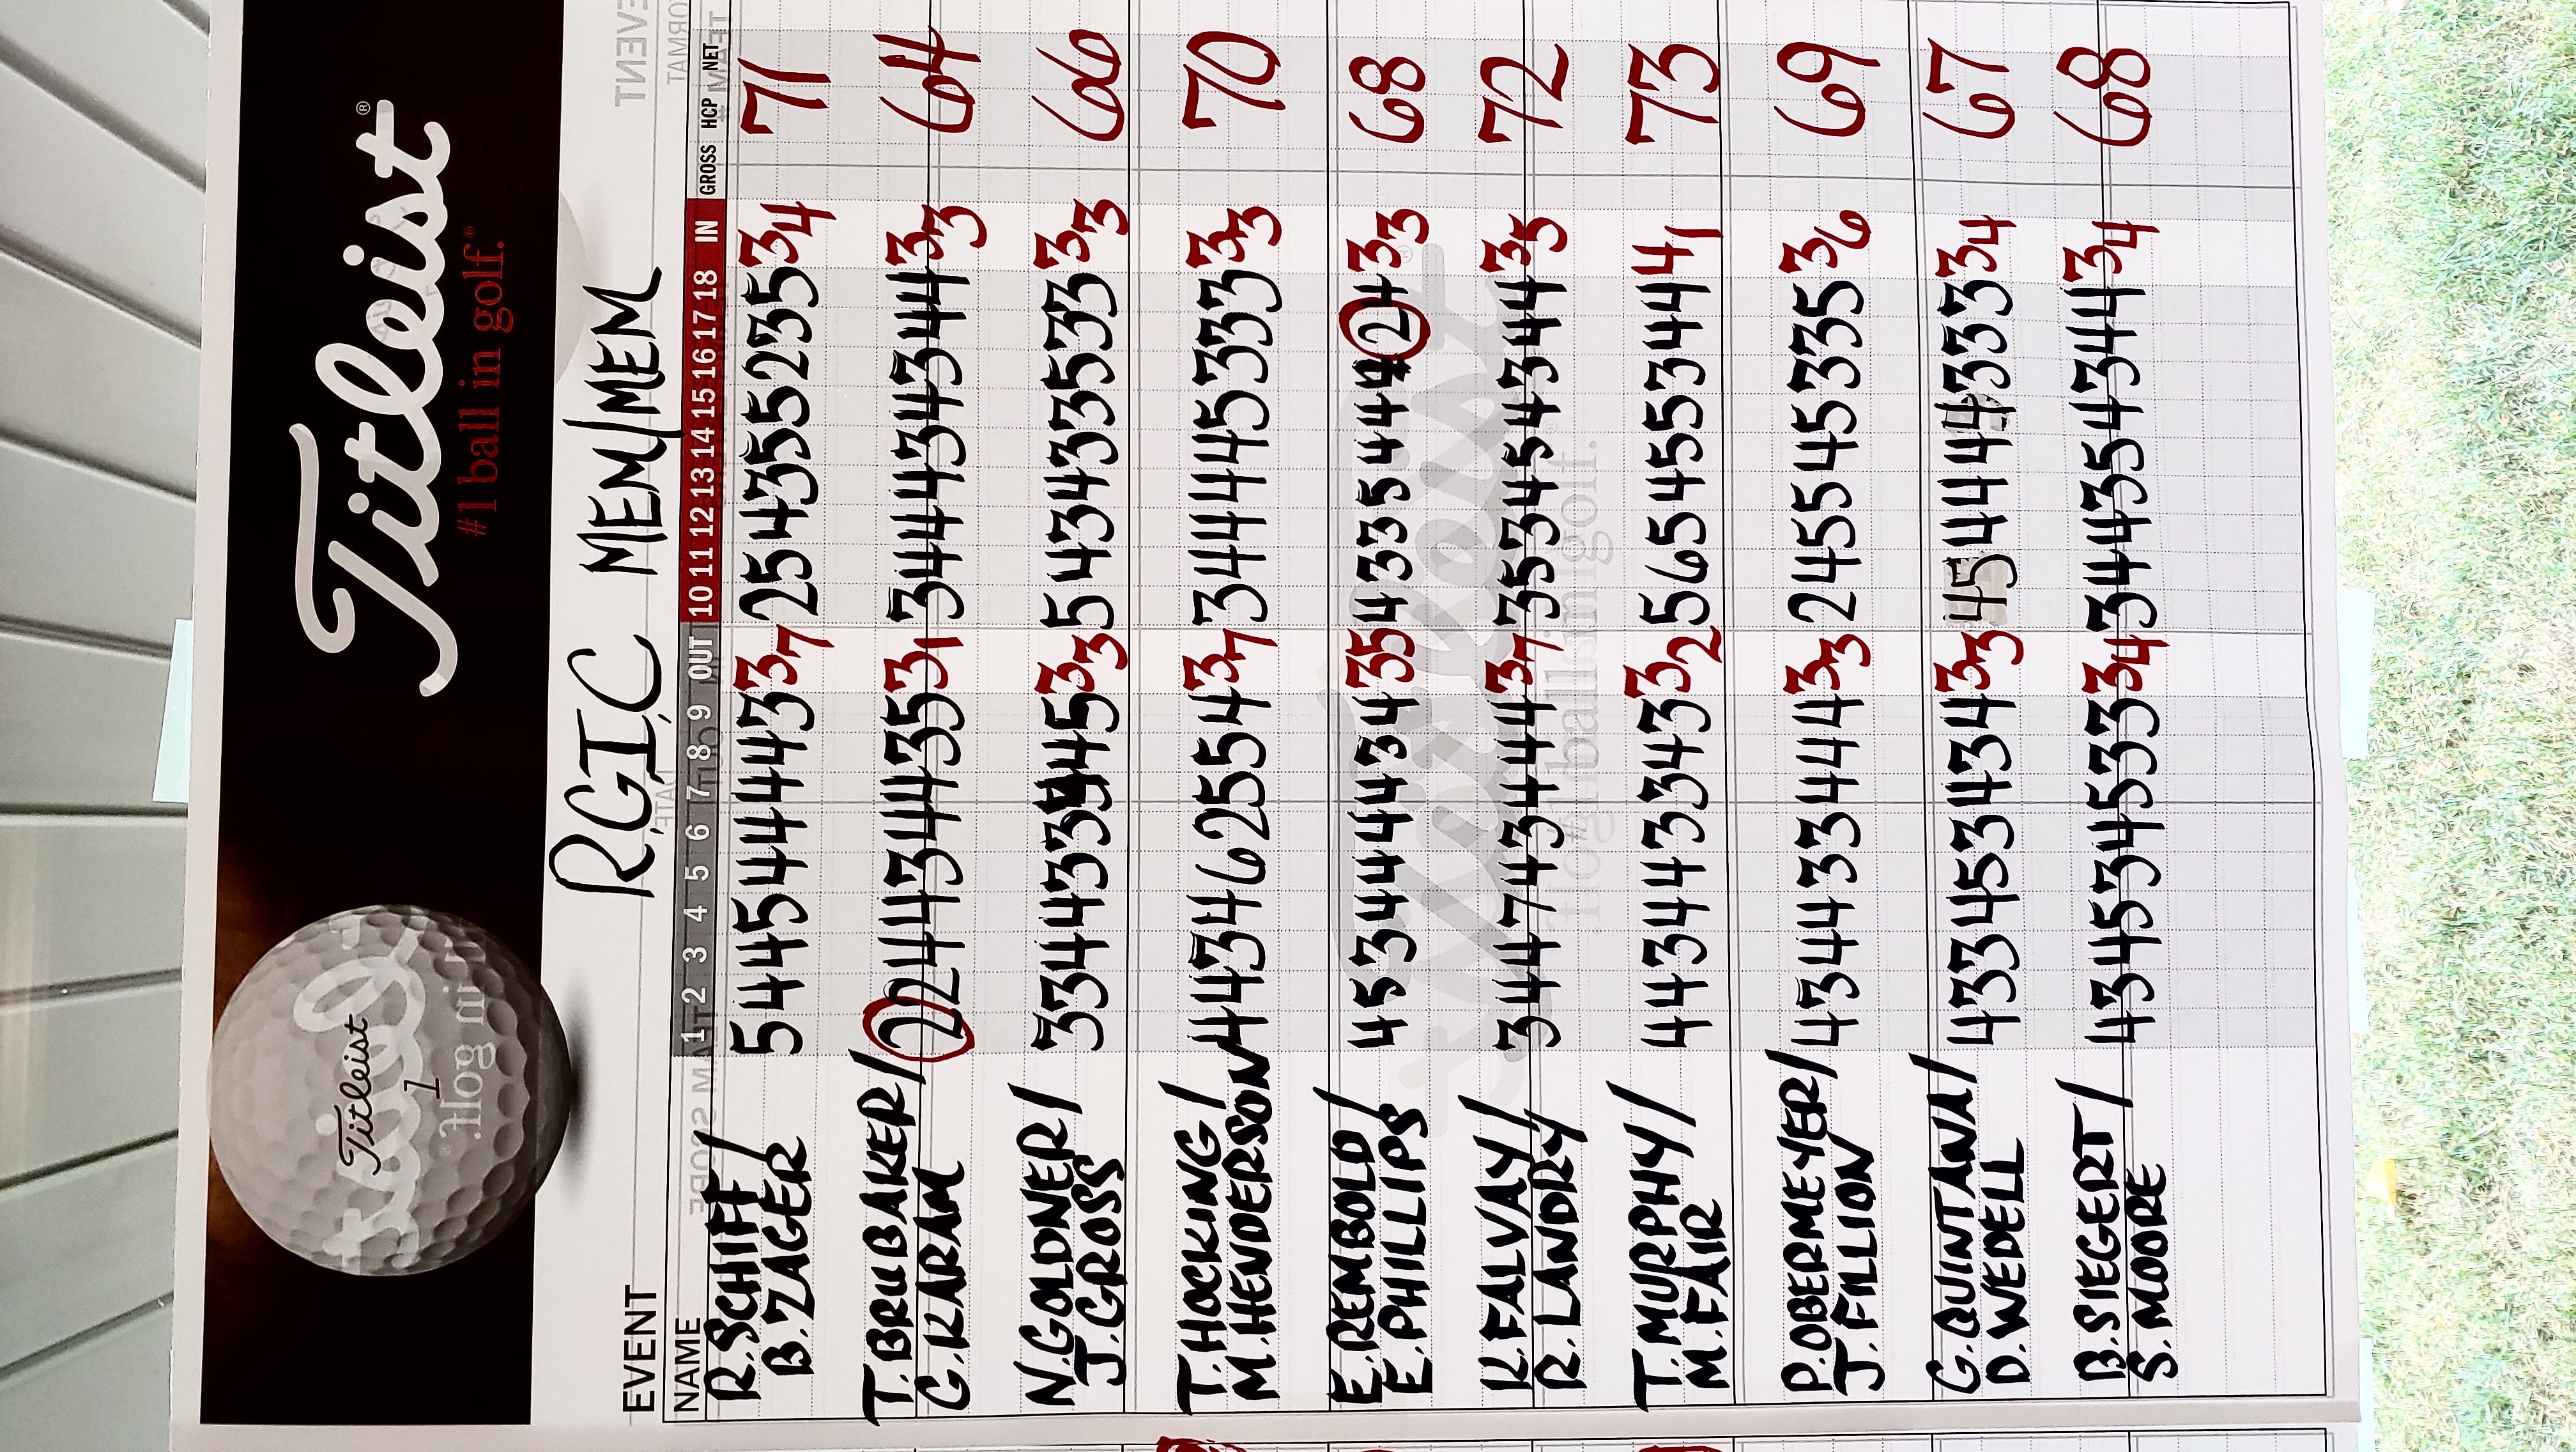 Titleist®
#1 ball in golf.®
Titleist
1
EVENT RGIC MEM/MEM
NAME 1 2 3 4 5 6 7 8 9 OUT 10 11 12 13 14 15 16 17 18 IN GROSS HCP NET
R.SCHIFF/ 5 4 4 5 4 4 4 4 3 37 2 5 4 3 5 5 2 3 5 34 71
B.ZAGER
T.BRUBAKER/ 2 2 4 4 3 4 4 3 5 31 3 4 4 4 3 4 3 4 4 33 64
G.KARAM
N.GOLDNER/ 3 3 4 4 3 3 4 4 5 33 5 4 3 4 3 3 5 3 3 33 66
J.GROSS
T.HOCKING/ 4 4 3 4 6 2 5 5 4 37 3 4 4 4 4 5 3 3 3 33 70
M.HENDERSON
E.REMBOLD/ 4 5 3 4 4 4 4 3 4 35 4 3 3 5 4 4 4 2 4 33 68
E.PHILLIPS
K.FALVAY/ 3 4 4 7 4 3 4 4 4 37 3 5 3 4 5 4 3 4 4 35 72
R.LANDRY
T.MURPHY/ 4 4 3 4 4 3 3 4 3 32 5 6 5 4 5 5 3 4 4 41 73
M.FAIR
P.OBERMEYER/ 4 3 4 4 3 3 4 4 4 33 2 4 5 5 4 5 3 3 5 36 69
J.FILLION
G.QUINTANA/ 4 3 3 4 5 3 4 3 4 33 4 5 4 4 4 4 3 3 3 34 67
D.WEDELL
B.SIEGERT/ 4 3 4 5 3 4 5 3 3 34 3 4 4 3 5 4 3 4 4 34 68
S.MOORE